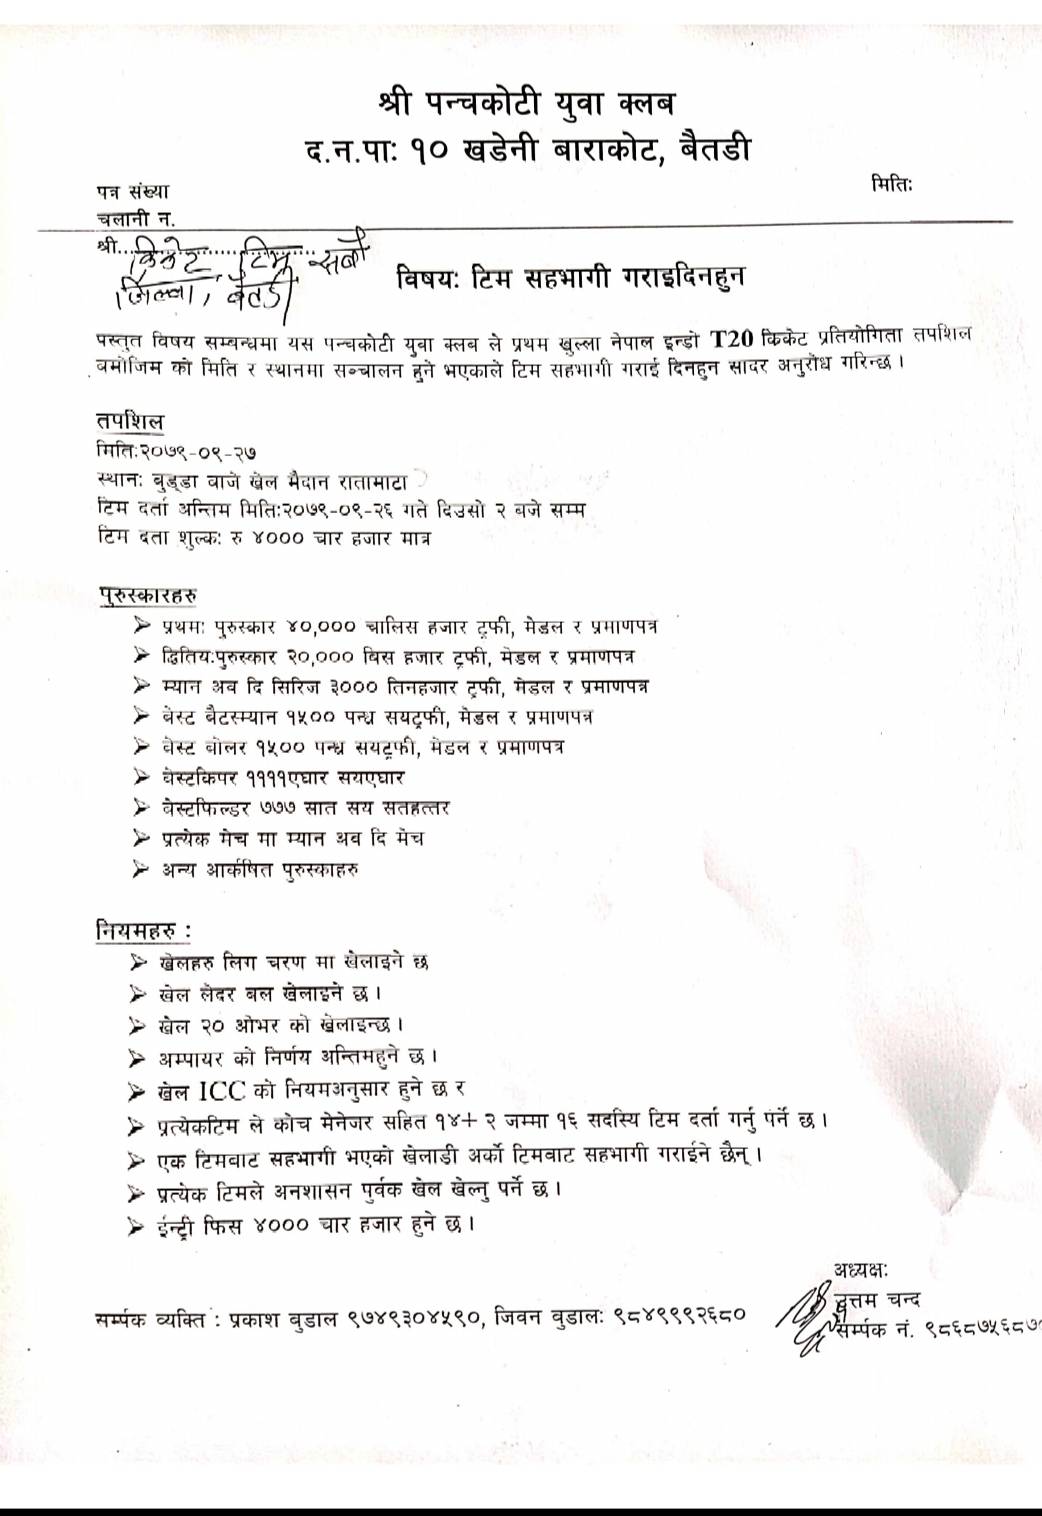 श्री पन्चकोटी युवा क्लब
द.न.पाः १० खडेनी बाराकोट, बैतडी
पत्र संख्या
मितिः
चलानी न.
श्री..क्रिकेट टिम सबै
जिल्ला, बैतडी
विषयः टिम सहभागी गराइदिनहुन
पस्तुत विषय सम्बन्धमा यस पन्चकोटी युवा क्लब ले प्रथम खुल्ला नेपाल इन्डो T20 किकेट प्रतियोगिता तपशिल
बमोजिम को मिति र स्थानमा सञ्चालन हुने भएकाले टिम सहभागी गराई दिनहुन सादर अनुरोध गरिन्छ ।
तपशिल
मितिः२०७९-०९-२७
स्थानः बुड्डा वाजे खेल मैदान रातामाटा
टिम दर्ता अन्तिम मितिः२०७९-०९-२६ गते दिउसो २ बजे सम्म
टिम दता शुल्कः रु ४००० चार हजार मात्र
पुरुस्कारहरु
➢ प्रथमः पुरुस्कार ४०,००० चालिस हजार ट्रफी, मेडल र प्रमाणपत्र
➢ द्वितियःपुरुस्कार २०,००० बिस हजार ट्रफी, मेडल र प्रमाणपत्र
➢ म्यान अब दि सिरिज ३००० तिनहजार ट्रफी, मेडल र प्रमाणपत्र
➢ बेस्ट बैटस्म्यान १५०० पन्ध्र सयट्रफी, मेडल र प्रमाणपत्र
➢ वेस्ट बोलर १५०० पन्ध्र सयट्रफी, मेडल र प्रमाणपत्र
➢ बेस्टकिपर ११११एघार सयएघार
➢ वेस्टफिल्डर ७७७ सात सय सतहत्तर
➢ प्रत्येक मेच मा म्यान अब दि मेच
➢ अन्य आर्कषित पुरुस्काहरु
नियमहरु :
➢ खेलहरु लिग चरण मा खेलाइने छ
➢ खेल लेदर बल खेलाइने छ ।
➢ खेल २० ओभर को खेलाइन्छ ।
➢ अम्पायर को निर्णय अन्तिमहुने छ ।
➢ खेल ICC को नियमअनुसार हुने छ र
➢ प्रत्येकटिम ले कोच मेनेजर सहित १४+ २ जम्मा १६ सदस्यि टिम दर्ता गर्नु पर्ने छ ।
➢ एक टिमबाट सहभागी भएको खेलाडी अर्को टिमबाट सहभागी गराईने छैन् ।
➢ प्रत्येक टिमले अनशासन पुर्वक खेल खेल्नु पर्ने छ ।
➢ ईन्ट्री फिस ४००० चार हजार हुने छ ।
अध्यक्षः
उत्तम चन्द
सर्म्पक व्यक्ति : प्रकाश बुडाल ९७४९३०४५९०, जिवन बुडालः ९८४९९९२६८०
सर्म्पक नं. ९८६८७५६८७